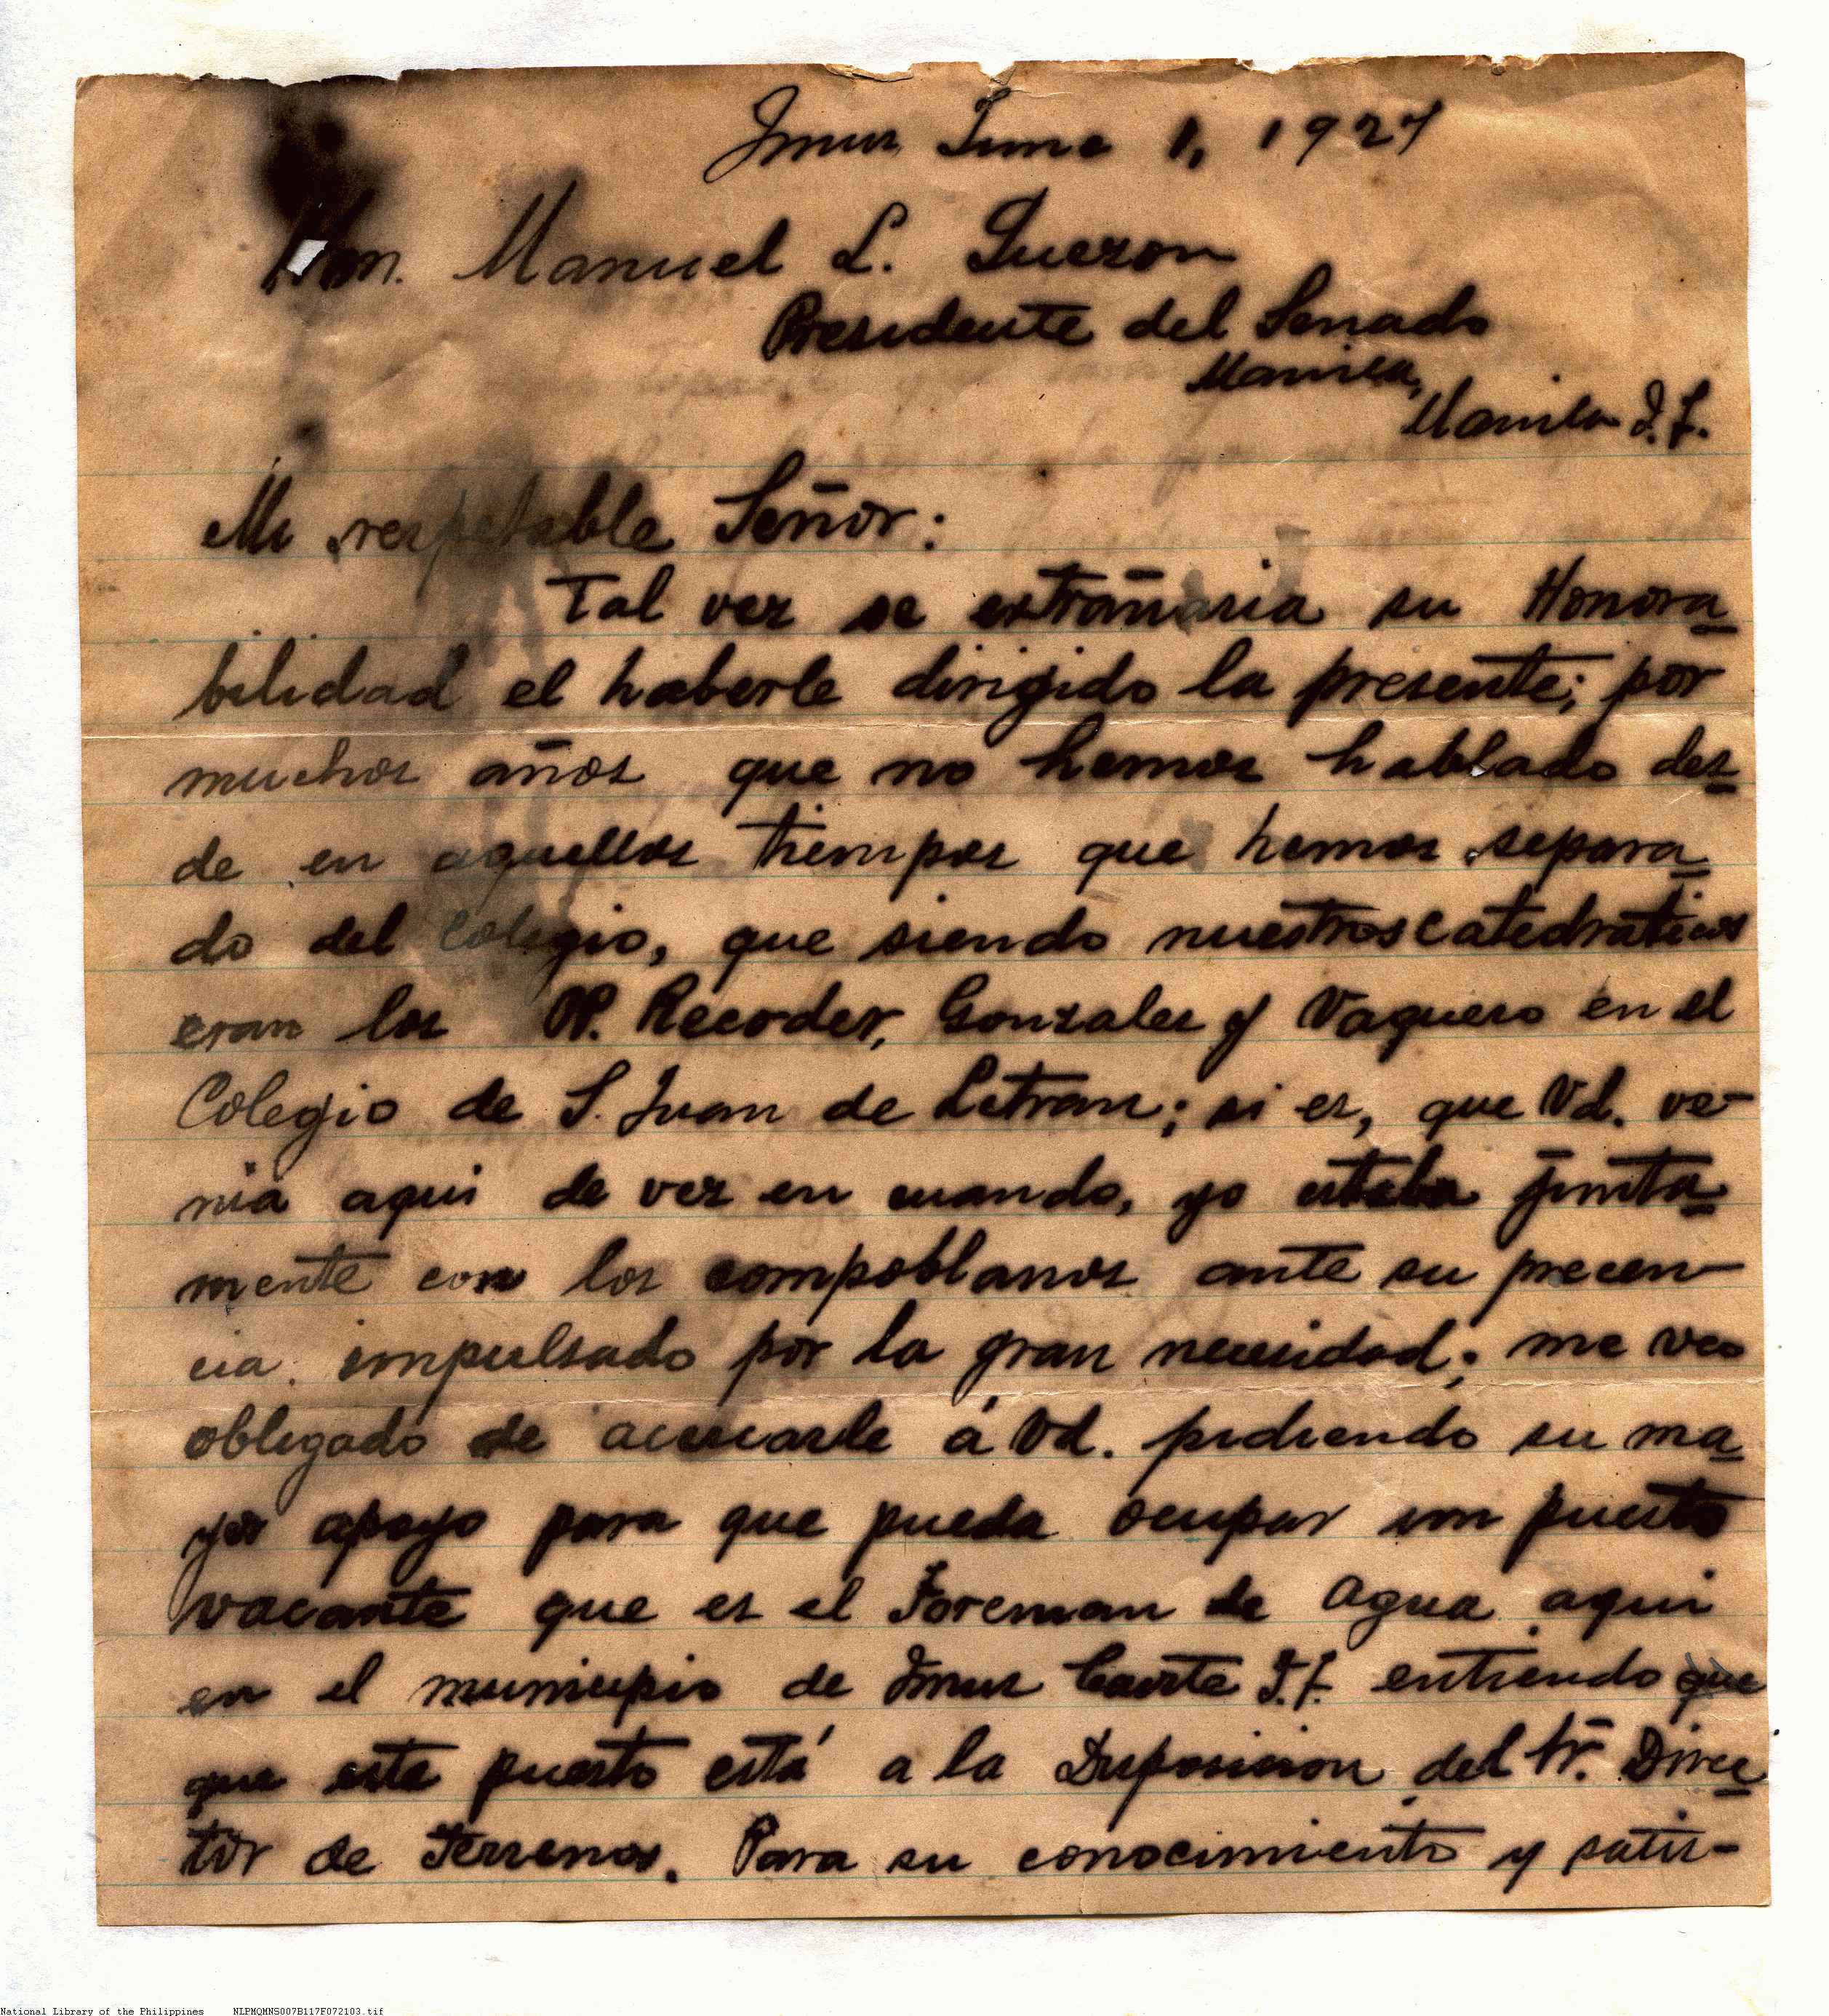 Imus June 1, 1927
Hon. Manuel L. Quezon
Presidente del Senado
Manila,
Manila I. F.
Mi respetable Señor:
Tal vez se extrañaria su Honora
bilidad el haberle dirigido la presente; por
muchos años que no hemos hablado des
de en aquellos tiempos que hemos separa
do del Colegio, que siendo nuestros catedraticos
eran los PP. Recoder, Gonzales y Vaquero en el
Colegio de S. Juan de Letran; si es, que Vd. ve-
nia aqui de vez en cuando, yo estaba junta
mente con los compoblanos ante su precen-
cia. impulsado por la gran necesidad; me veo
obligado de acercarle á Vd. pidiendo su ma
yor apoyo para que pueda ocupar un puesto
vacante que es el Foreman de Agua aqui
en el municipio de Imus Cavite I. F. entiendo que
que este puesto está a la Disposicion del Sr. Direc
tor de Terrenos. Para su conocimiento y satis-
National Library of the Philippines NLPMQMNS007B117F072103.tif